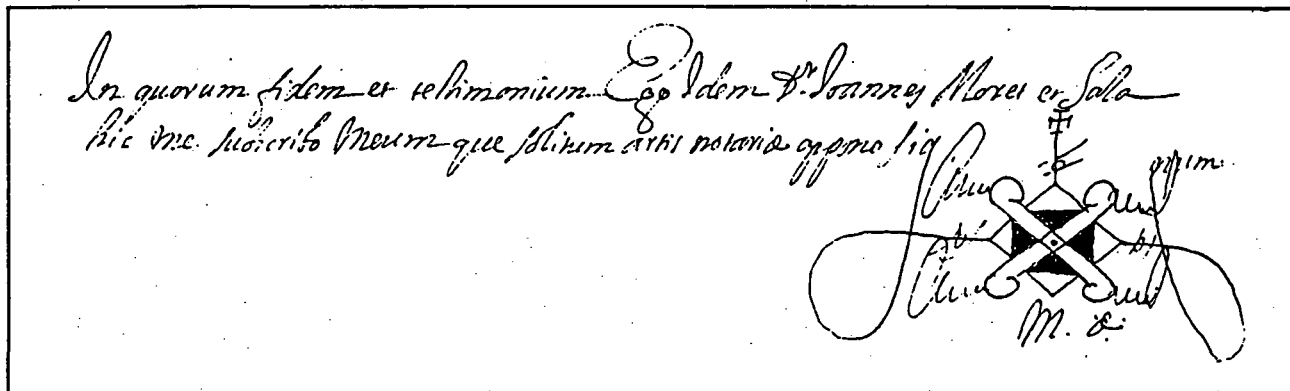 In quorum fidem et testimonium Ego Idem Dr. Joannes Moret et Sala
hic me subscribo meum que solitum artis notariæ appono sig num.
M. &.